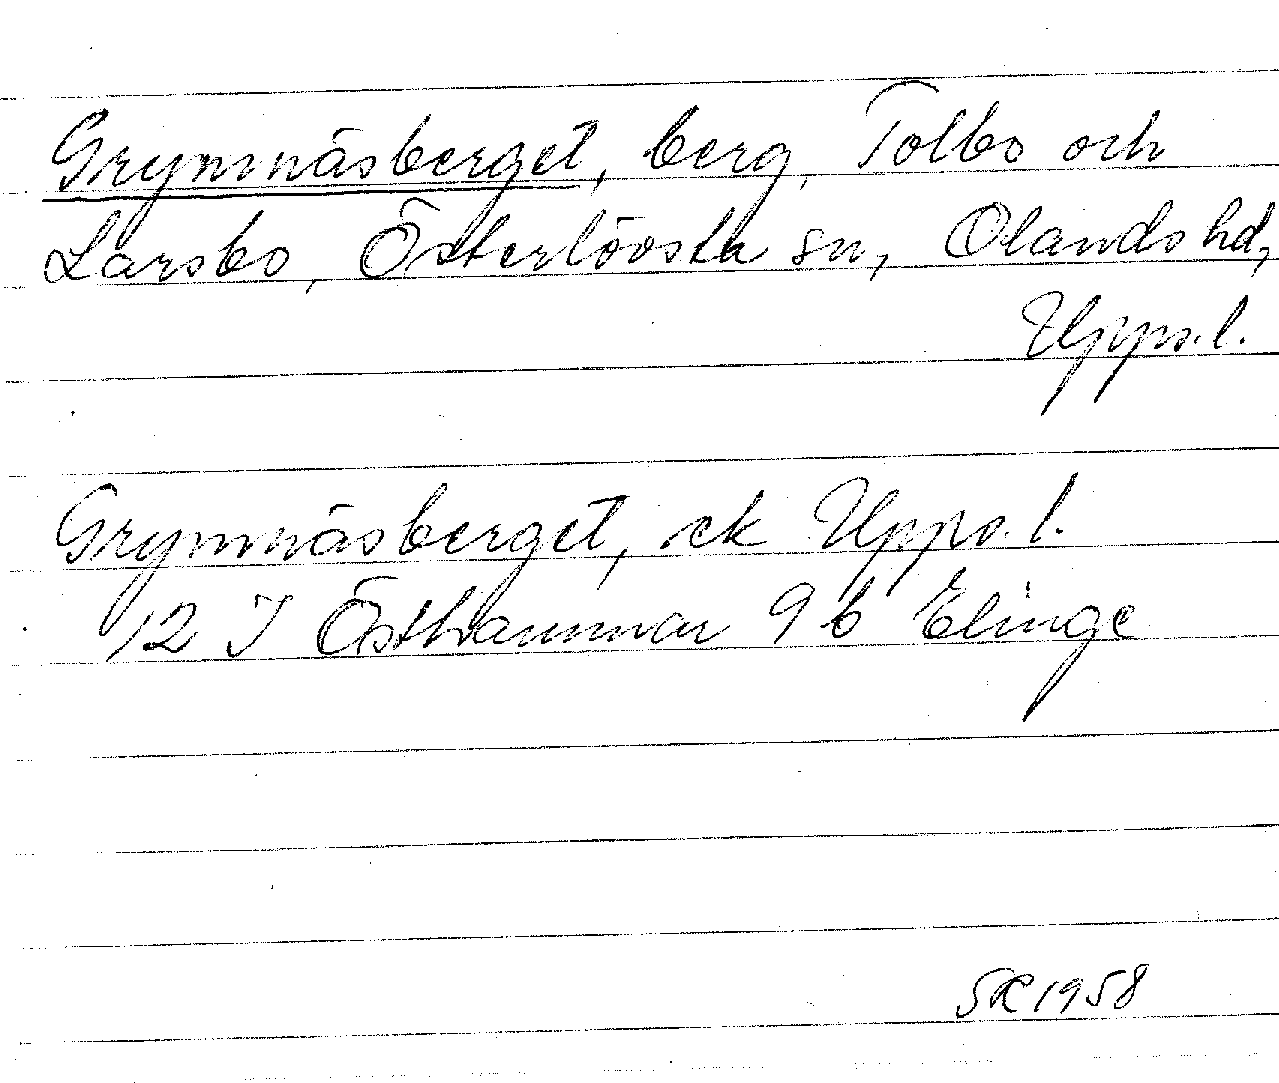 Grymnäsberget, berg, Tolbo och
Larsbo, Österlövsta sn, Olands hd,
Upps. l.
Grymnäsberget, ek Upps. l.
12 I Östhammar 9 b Elinge
SR 1958